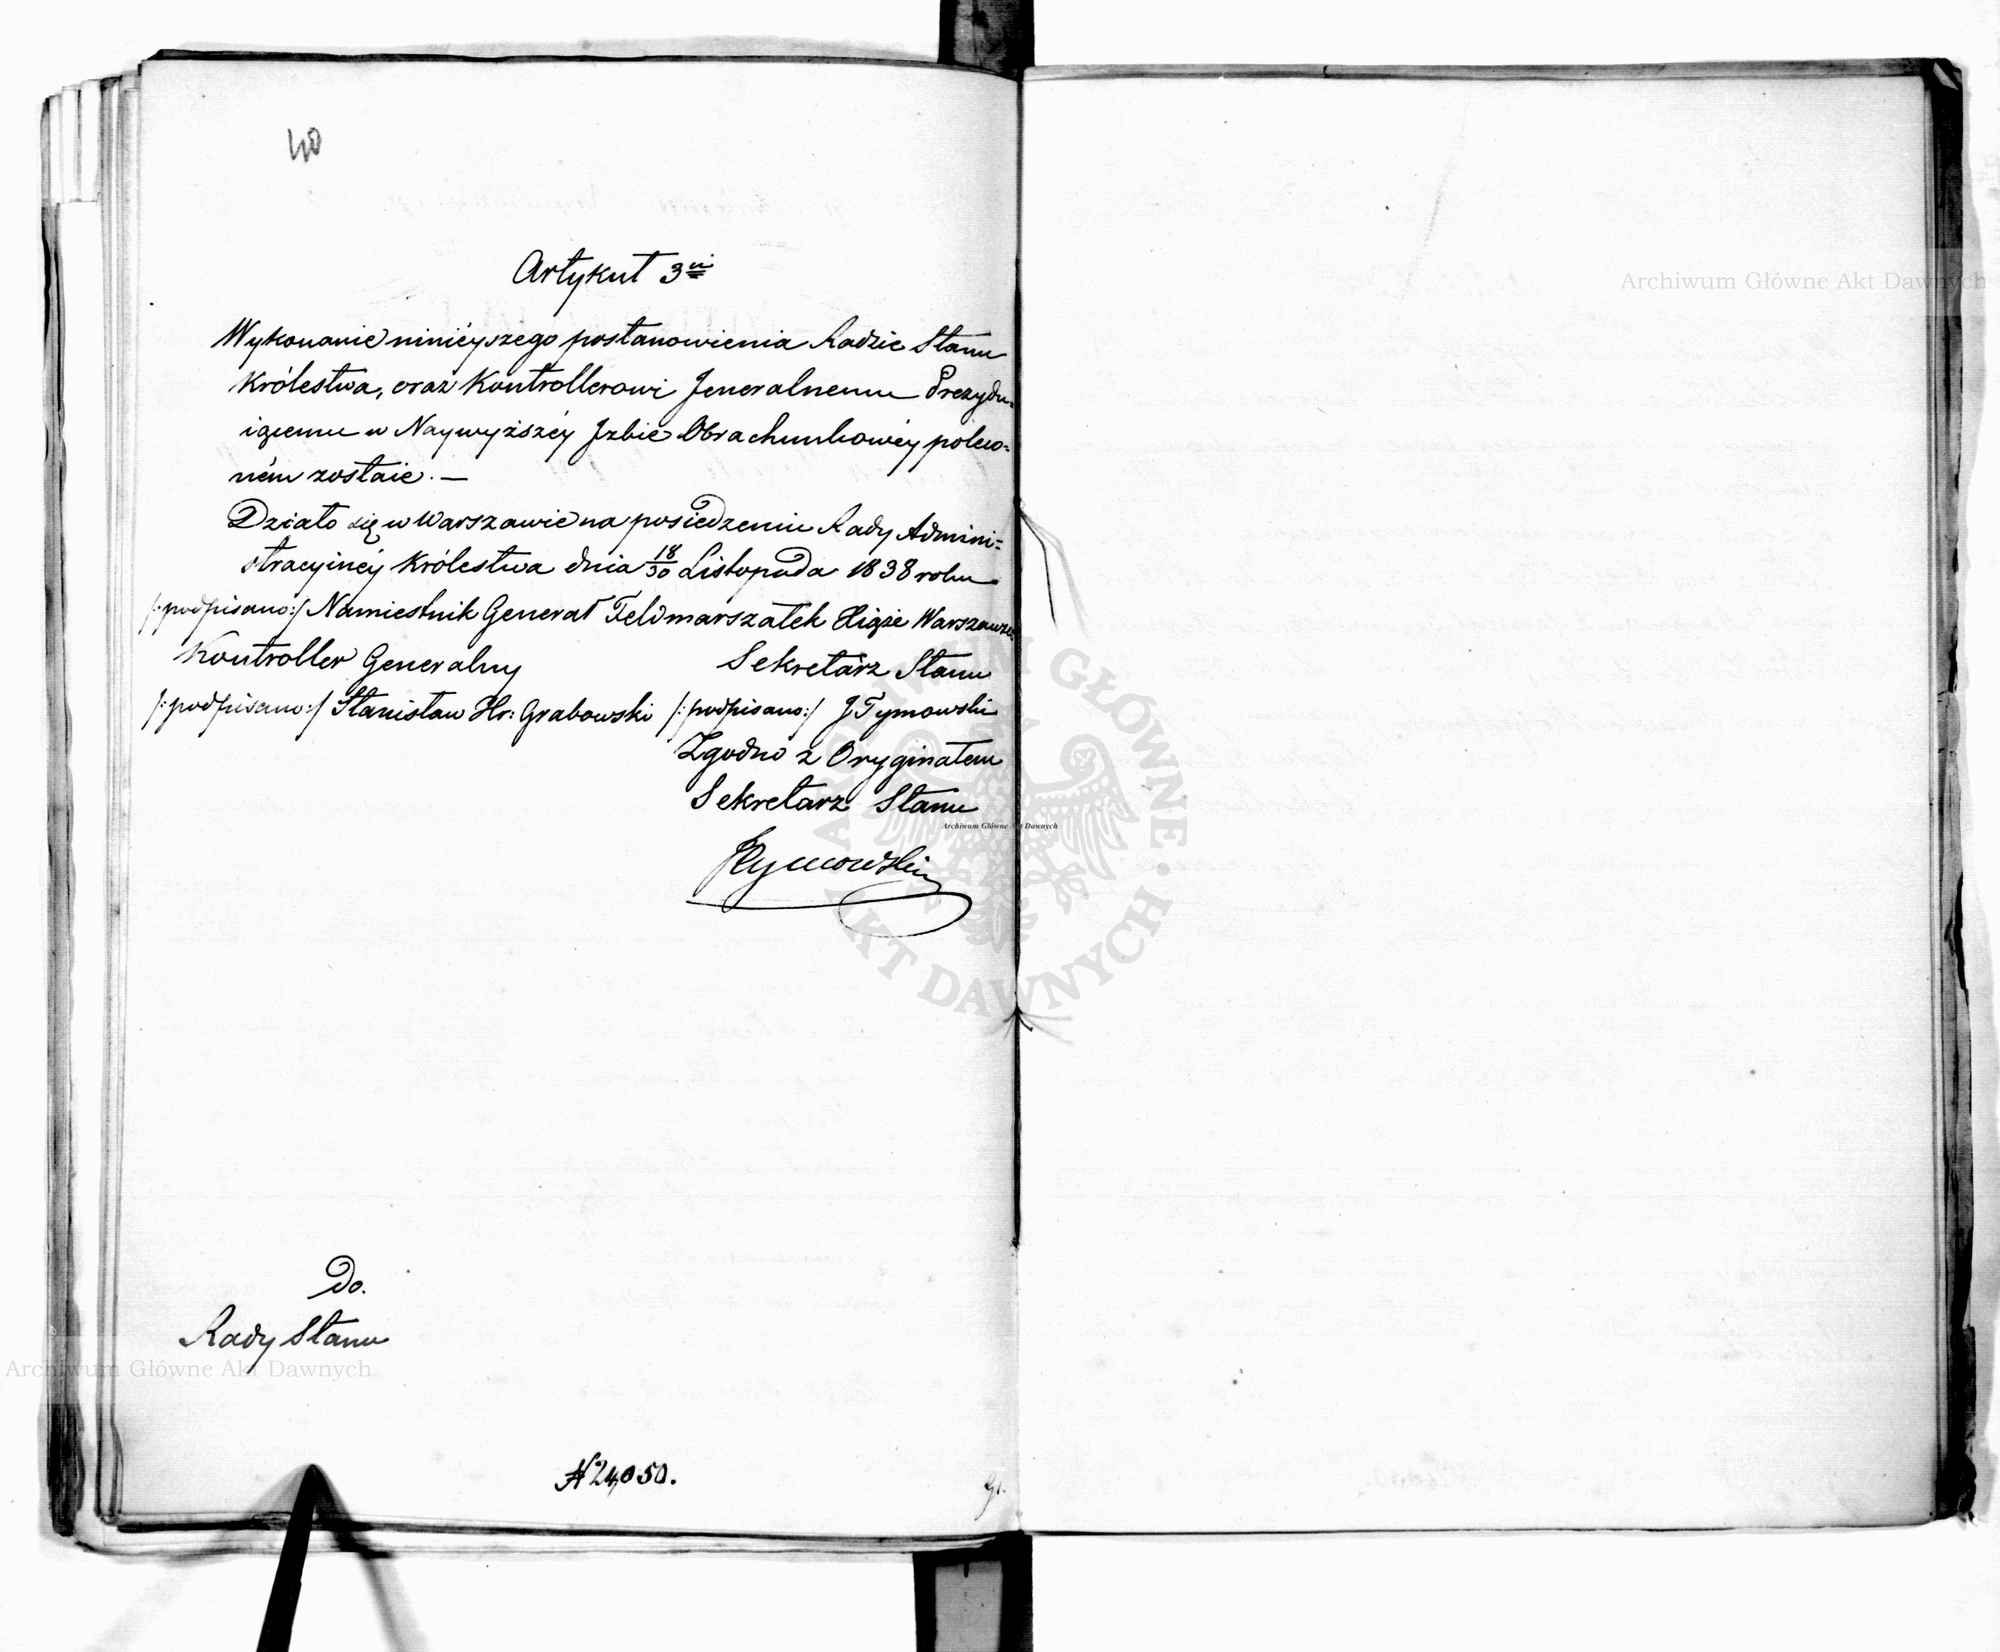 40
Artykuł 3ci
Wykonanie ninieyszego postanowienia Radzie Stanu
Królestwa, oraz Kontrollerowi Jeneralnemu Prezydu=
iącemu w Naywyższéy Izbie Obrachunkowéy poleco=
ném zostaie. —
Działo się w Warszawie na posiedzeniu Rady Admini=
stracyinéy Królestwa dnia 18/30 Listopada 1838 roku
/:podpisano:/ Namiestnik Generał Feldmarszałek Xiąże Warszawski
Kontroller Generalny Sekretarz Stanu
/:podpisano:/ Stanisław Hr: Grabowski /:podpisano:/ J Tymowski
Zgodno z Oryginałem
Sekretarz Stanu
JTymowski
Do.
Rady Stanu
N 24,050.
Archiwum Główne Akt Dawnych
Archiwum Główne Akt Dawnych
Archiwum Główne Akt Dawnych
ARCHIWUM GŁÓWNE AKT DAWNYCH